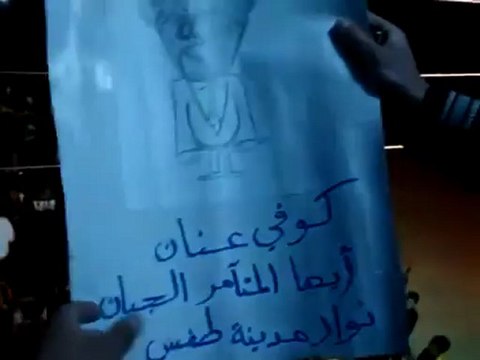 كوفي عنان
أيها المتآمر الجبان
ثوار مدينة طفس